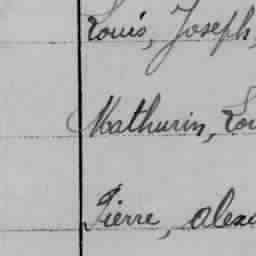 Louis, Joseph,
Mathurin, Lou
Pierre, alex